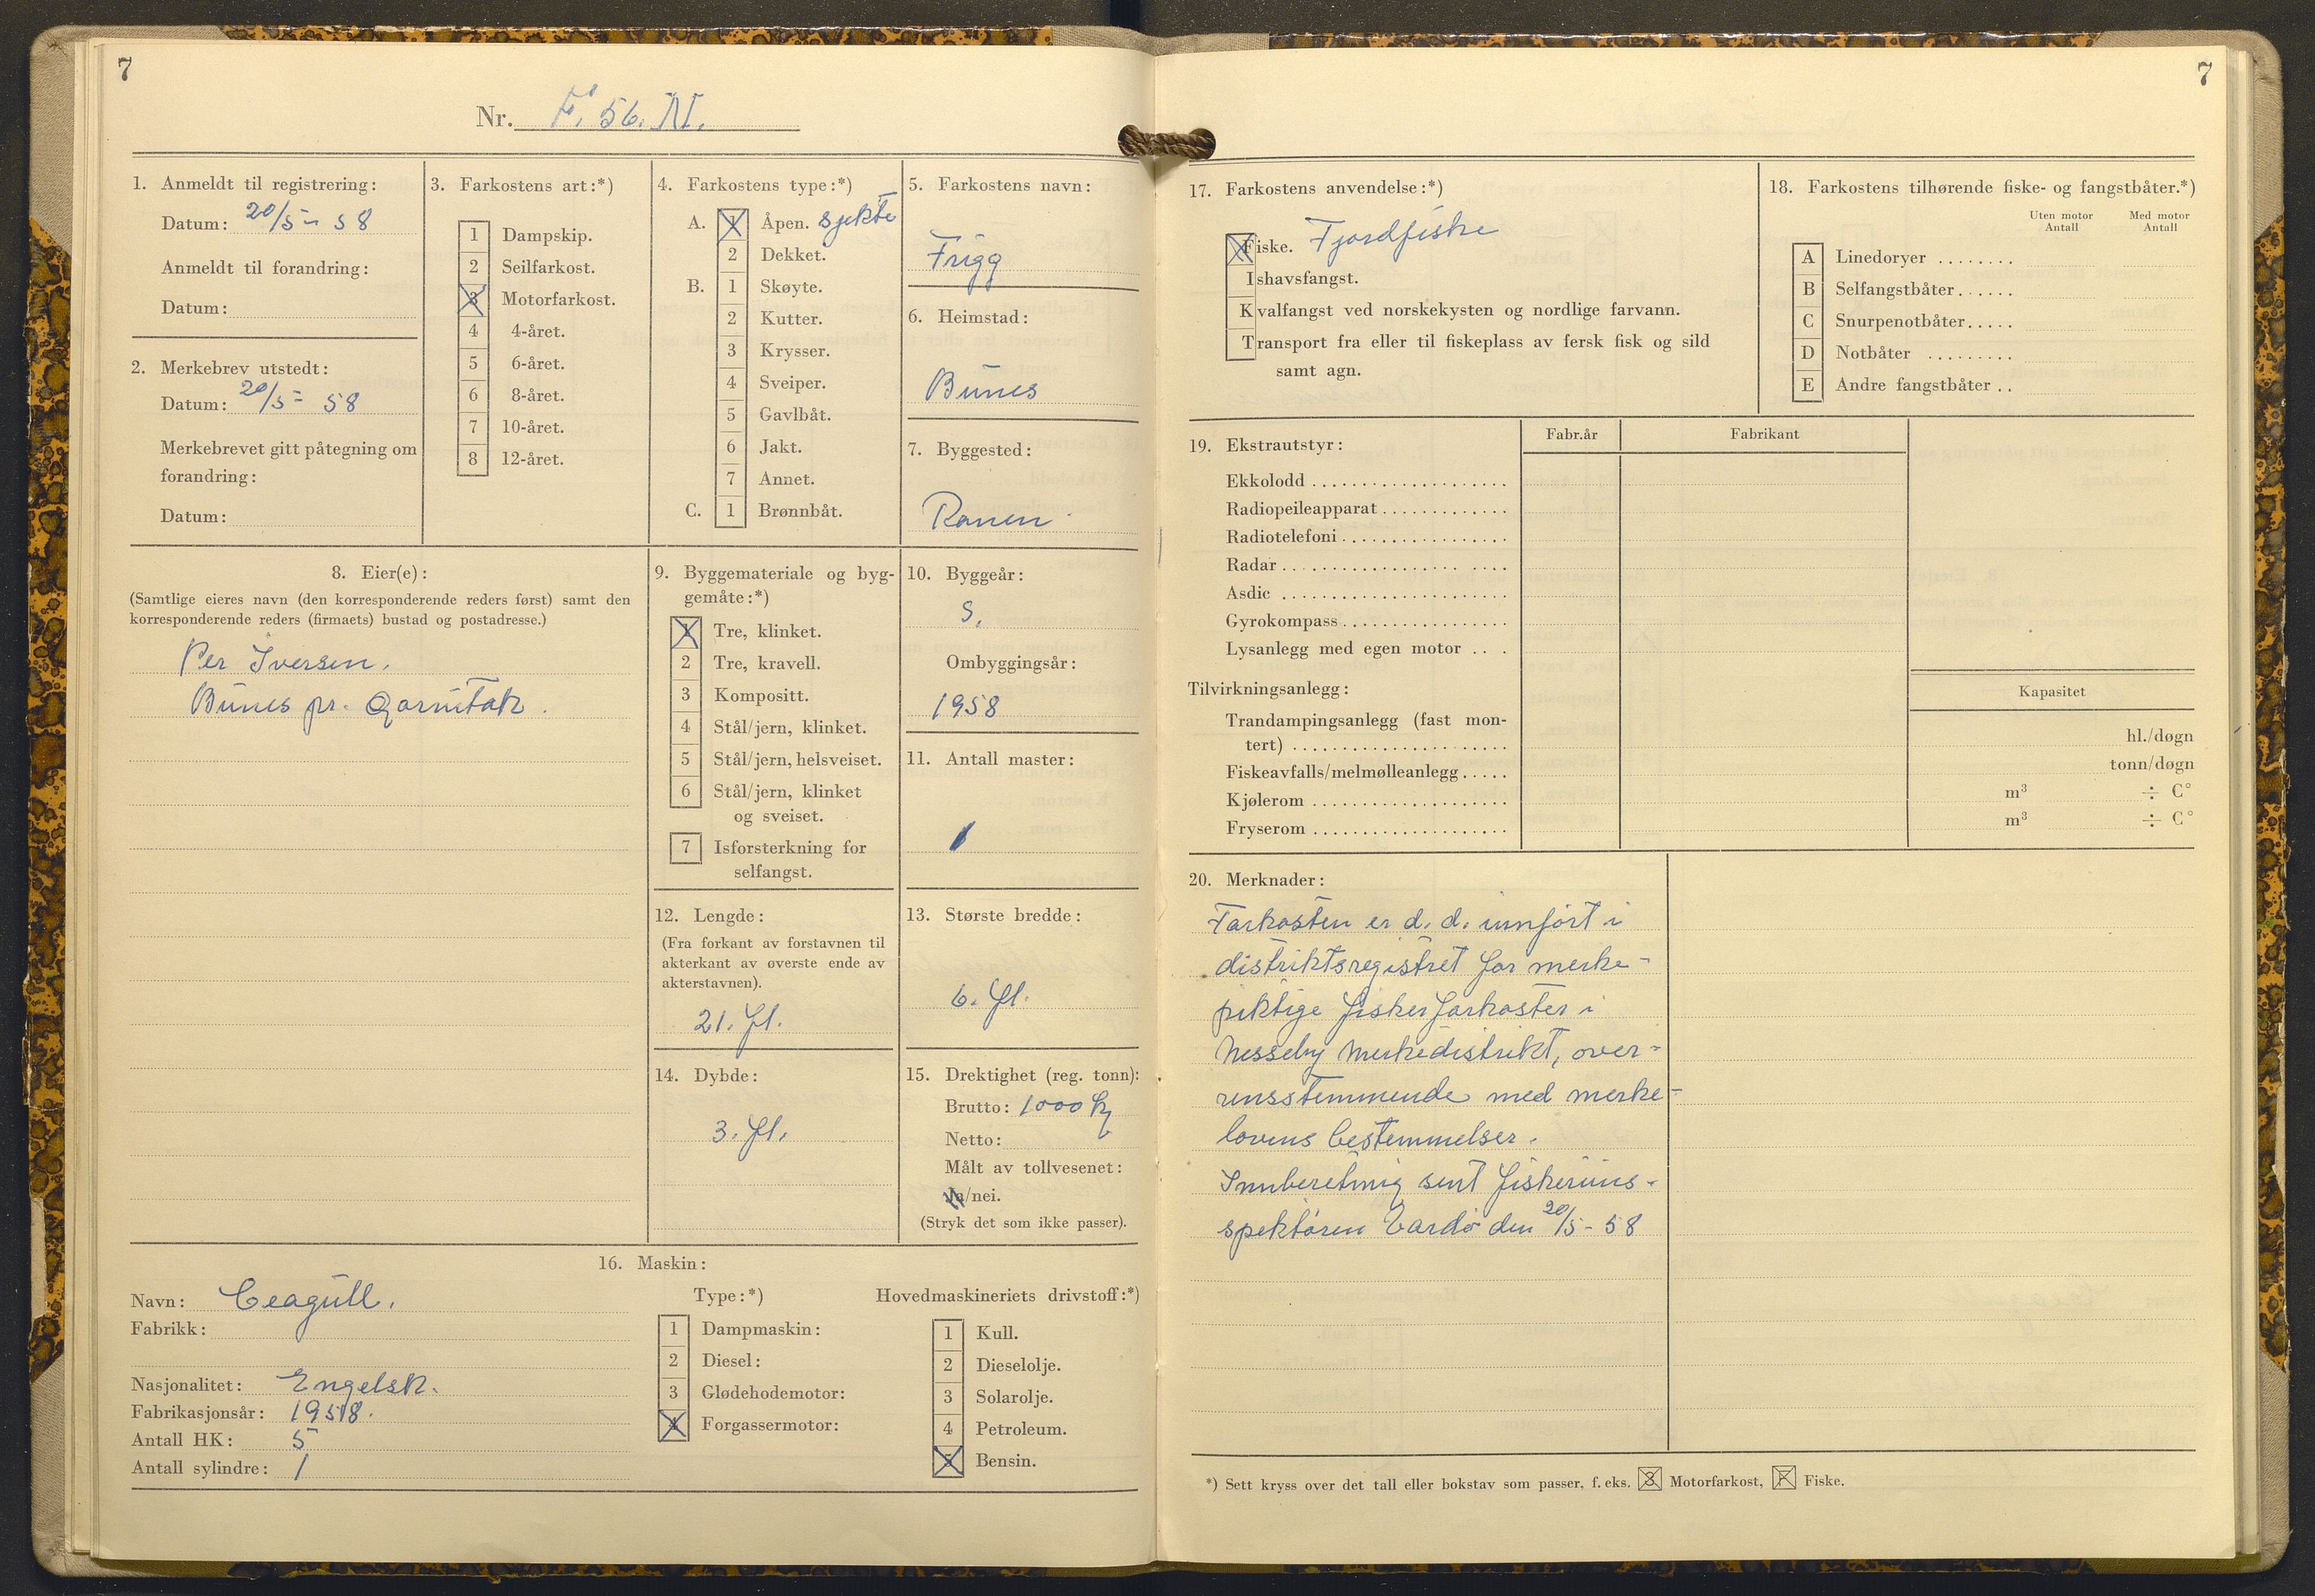 7
Nr. F. 56. N.
1. Anmeldt til registrering:
Datum: 20/5 - 58
Anmeldt til forandring:
Datum:
2. Merkebrev utstedt:
Datum: 20/5 - 58
Merkebrevet gitt påtegning om
forandring:
Datum:
3. Farkostens art:*)
1 Dampskip.
2 Seilfarkost.
3 Motorfarkost.
4 4-året.
5 6-året.
6 8-året.
7 10-året.
8 12-året.
4. Farkostens type:*)
A. 1 Åpen. sjekte
2 Dekket.
B. 1 Skøyte.
2 Kutter.
3 Krysser.
4 Sveiper.
5 Gavlbåt.
6 Jakt.
7 Annet.
C. 1 Brønnbåt.
5. Farkostens navn:
Frigg
6. Heimstad:
Bunes
7. Byggested:
Ranen
8. Eier(e):
(Samtlige eieres navn (den korresponderende reders først) samt den
korresponderende reders (firmaets) bustad og postadresse.)
Per Iversen.
Bunes pr. Gornitak.
9. Byggemateriale og byg-
gemåte:*)
1 Tre, klinket.
2 Tre, kravell.
3 Kompositt.
4 Stål/jern, klinket.
5 Stål/jern, helsveiset.
6 Stål/jern, klinket
og sveiset.
7 Isforsterkning for
selfangst.
10. Byggeår:
S.
Ombyggingsår:
1958
11. Antall master:
1
12. Lengde:
(Fra forkant av forstavnen til
akterkant av øverste ende av
akterstavnen).
21. ft.
13. Største bredde:
6. ft.
14. Dybde:
3. ft.
15. Drektighet (reg. tonn):
Brutto: 1000 kg
Netto:
Målt av tollvesenet:
Ja/nei.
(Stryk det som ikke passer).
16. Maskin:
Navn: Ceagull.
Fabrikk:
Nasjonalitet: Engelsk.
Fabrikasjonsår: 1958.
Antall HK: 5
Antall sylindre: 1
Type:*)
1 Dampmaskin:
2 Diesel:
3 Glødehodemotor:
4 Forgassermotor:
Hovedmaskineriets drivstoff:*)
1 Kull.
2 Dieselolje.
3 Solarolje.
4 Petroleum.
5 Bensin.
7
17. Farkostens anvendelse:*)
Fiske. Fjordfiske
Ishavsfangst.
Kvalfangst ved norskekysten og nordlige farvann.
Transport fra eller til fiskeplass av fersk fisk og sild
samt agn.
18. Farkostens tilhørende fiske- og fangstbåter.*)
Uten motor Med motor
Antall Antall
A Linedoryer ........
B Selfangstbåter......
C Snurpenotbåter.....
D Notbåter .........
E Andre fangstbåter ..
19. Ekstrautstyr:
Fabr.år Fabrikant
Ekkolodd ....................
Radiopeileapparat .............
Radiotelefoni .................
Radar .................. ....
Asdic .......................
Gyrokompass .................
Lysanlegg med egen motor ...
Tilvirkningsanlegg:
Kapasitet
Trandampingsanlegg (fast mon-
tert) ...................... hl./døgn
Fiskeavfalls/melmølleanlegg..... tonn/døgn
Kjølerom .................... m³ ÷ C°
Fryserom .................... m³ ÷ C°
20. Merknader:
Farkosten er d. d. innført i
distriktsregistret for merke-
piktige fiskerfarkoster i
Nesseby merkedistrikt, over-
ensstemmende med merke-
lovens bestemmelser.
Innberetning sent fiskeriins-
spektøren Vardø den 20/5 - 58
*) Sett kryss over det tall eller bokstav som passer, f. eks. 3 Motorfarkost, F Fiske.